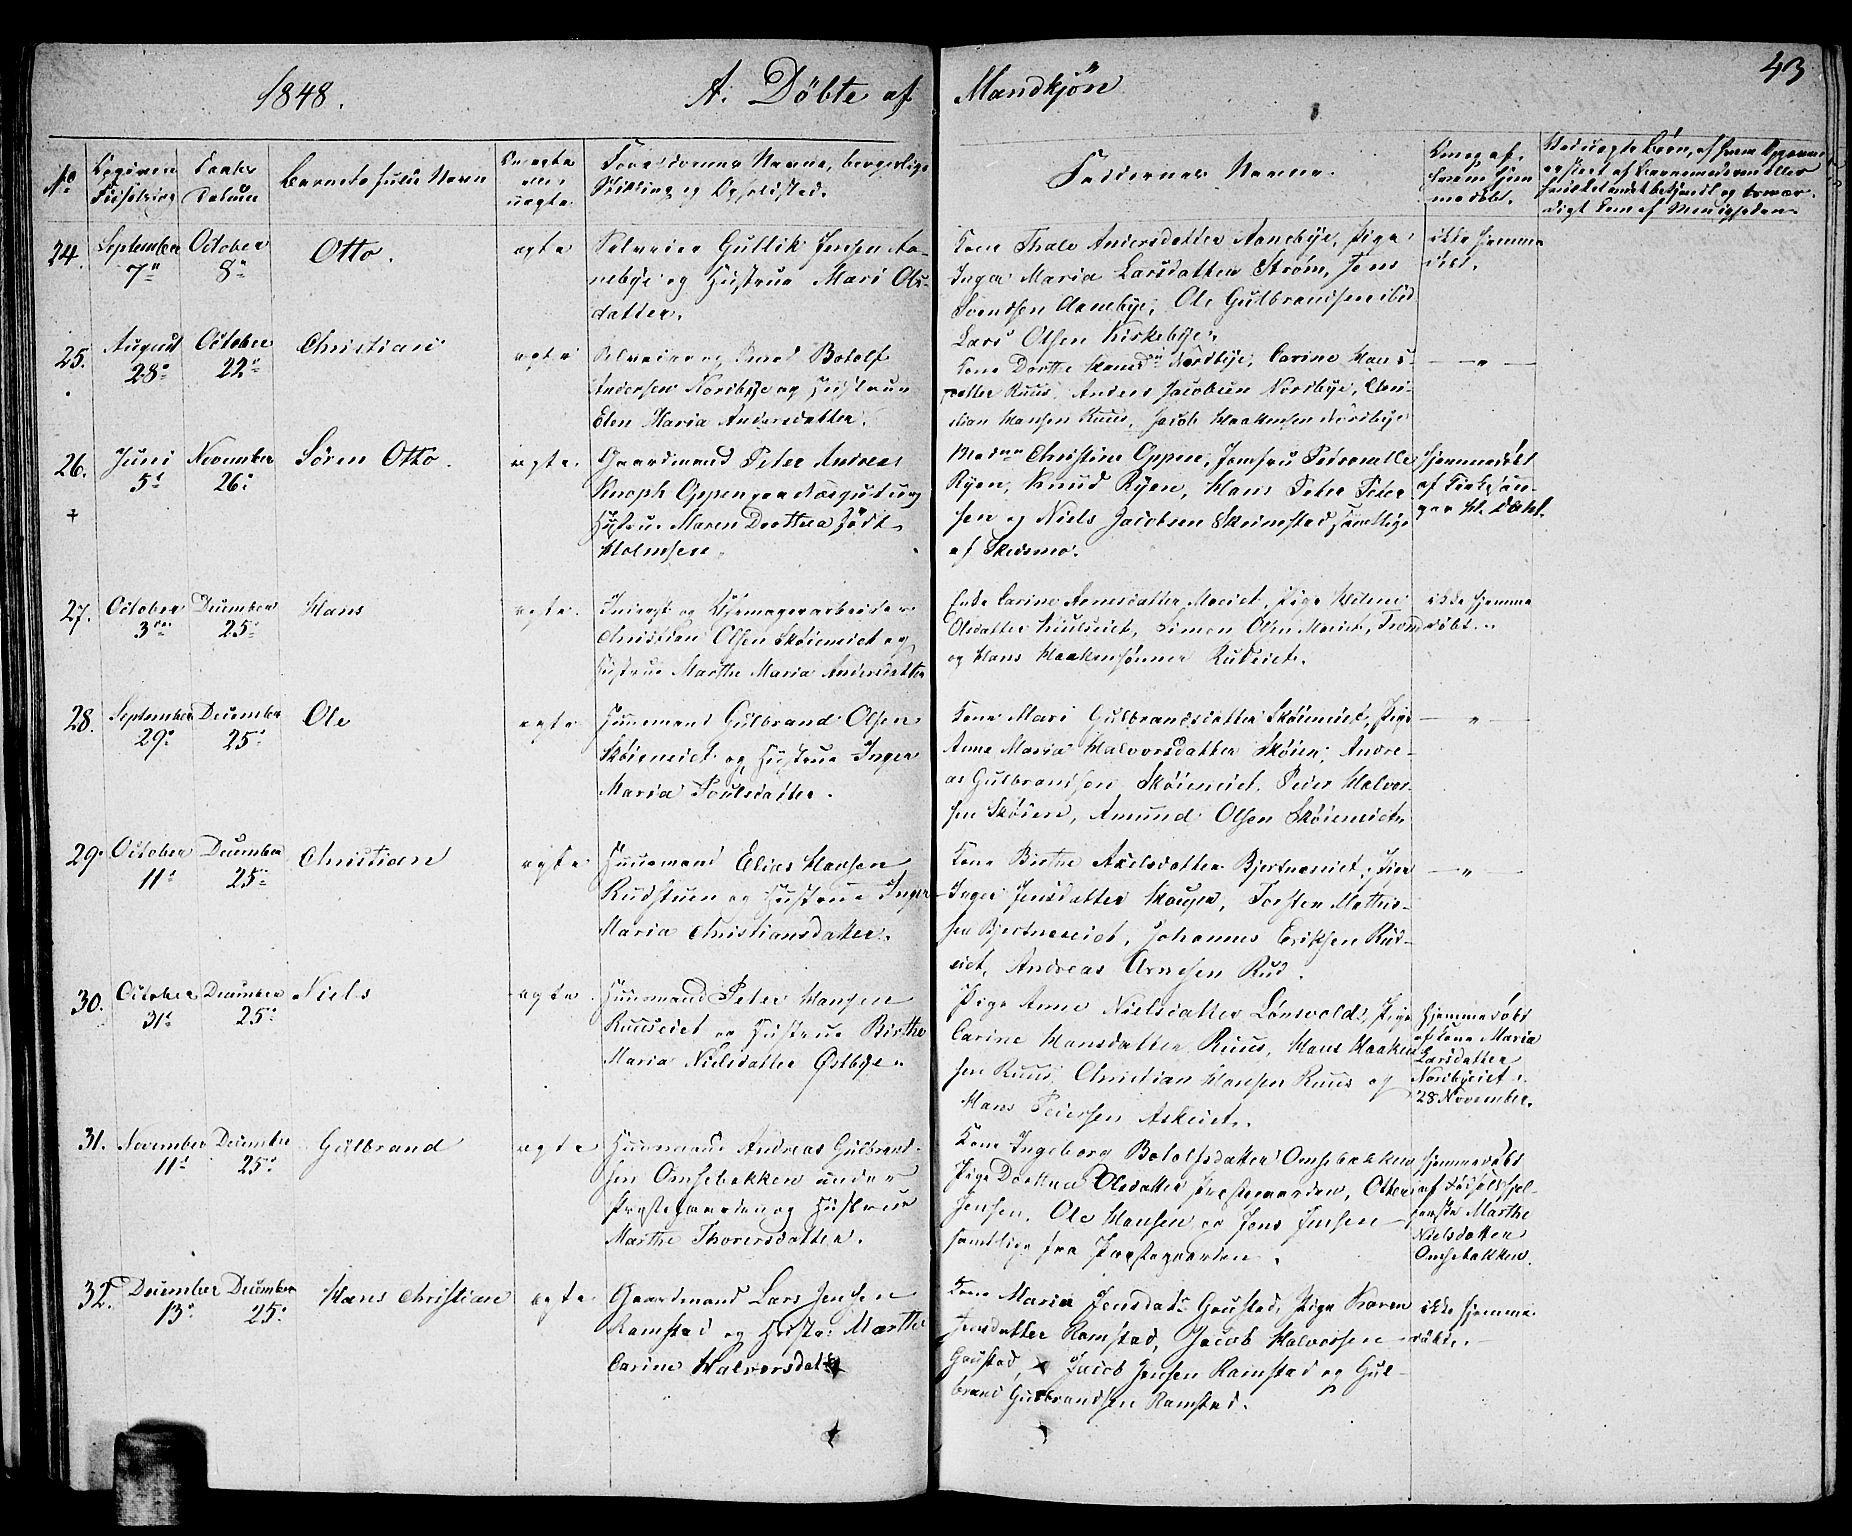 1848.
A. Döbte af
Mandkjön
43
No
Barnets fulde Navn
Faddernes Navne.
24. September 7de October 8de Otto. ægte Selveier Gullik Jensen Aa-
nebye og Hustrue Mari Ols-
datter.
Kone Thale Andersdatter Aanebye, Pige
Inger Maria Larsdatter Ström, Jens
Svendsen Aanebye, Ole Gulbrandsen ibid
Lars Olsen Kirkebye.
ikke hjemme
döbt.
25. August 28de October 22de Christian ægte Selveier og Smed Botolf
Andersen Nordbye og Hustrue
Elen Maria Andersdatter.
Kone Dorthe Nordbye, Carine Hans-
datter Ruus, Anders Jacobsen Nordbye, Chri-
stian Hansen Ruus, Jacob Haakensen Nordbye
— " —
26. Juni 5te November 26de Sören Otto. ægte. Gaardmand Peter Andreas
Knoph Oppengaardæguden og
Hustrue Maren Dorthea födt
Holmsen.
Christine Oppen, Jomfru Petronelle
Ryen, Knud Ryen, Hans Peter Peter-
sen og Niels Jacobsen Skeimstad samtlige
af Skedsmo.
hjemmedöbt
af Kirkesan-
ger Dahl.
27. October 3die December 25de Hans ægte. Inderst og Christian Olsen Sköieneiet og
Hustrue Marthe Maria Andersdatter
Enke Carine Arnesdatter Moeiet, Pige Helene
Olsdatter Simen Olsen Moeiet, Trond
og Hans Haakensönner Rudeiet.
ikke hjemme
döbt.
28. September 29de December 25de Ole ægte Huusmand Gulbrand Olsen
Sköieneiet og Hustrue Inger
Maria Poulsdatter.
Kone Mari Gulbrandsdatter Sköieneiet, Pige
Anne Maria Halvorsdatter Sköien, Andre-
as Gulbrandsen Sköieneiet, Peder Halvor-
sen Sköien, Amund Olsen Sköieneiet
— " —
29. October 11te December 25de Christian ægte Huusmand Elias Hansen
Rudstuen og Hustrue Inger
Maria Christiansdatter.
Kone Birthe Axelsdatter Bjertneseiet, Pige
Inger Jensdatter Hougen, Torsten Mathie-
sen Bjertneseiet, Johannes Eriksen Rud-
eiet, Andreas Arnesen Rud.
— " —
30. October 31te December 25de Niels ægte Huusmand Peter Hansen
Ruuseiet og Hustrue Birthe
Maria Nielsdatter Østbye.
Pige Anne Nielsdatter Lönvold, Pige
Carine Hansdatter Ruus, Hans Haaken-
sen Ruus, Christian Hansen Ruus og
Hans Pedersen Askeiet.
hjemmedöbt
af Kone Maria
Larsdatter
Nordbyeiet
28 November.
31. November 11te December 25de Gulbrand ægte Huusmand Andreas Gulbrand-
sen Omsebakken under
Præstegaarden og Hustrue
Marthe Thorersdatter.
Kone Ingeborg Botolfsdatter Omsebakken
Pige Dorthea Olsdatter Præstegaarden, Otter
Jensen, Ole Hansen og Jens Jensen
samtlige fra Præstegaarden.
hjemmedöbt
af Födselshjel-
perske Marthe
Nielsdatter
Omsebakken.
32. December 13de December 25de Hans Christian ægte Gaardmand Lars Jensen
Ramstad og Hustrue Marthe
Carine Halvorsdatter
Kone Maria Jensdatter Goustad, Pige Karen
Jensdatter Ramstad, Jacob Halvorsen
Goustad, Jacob Jensen Ramstad og Gul-
brand Gulbrandsen Ramstad.
ikke hjemme-
döbt.